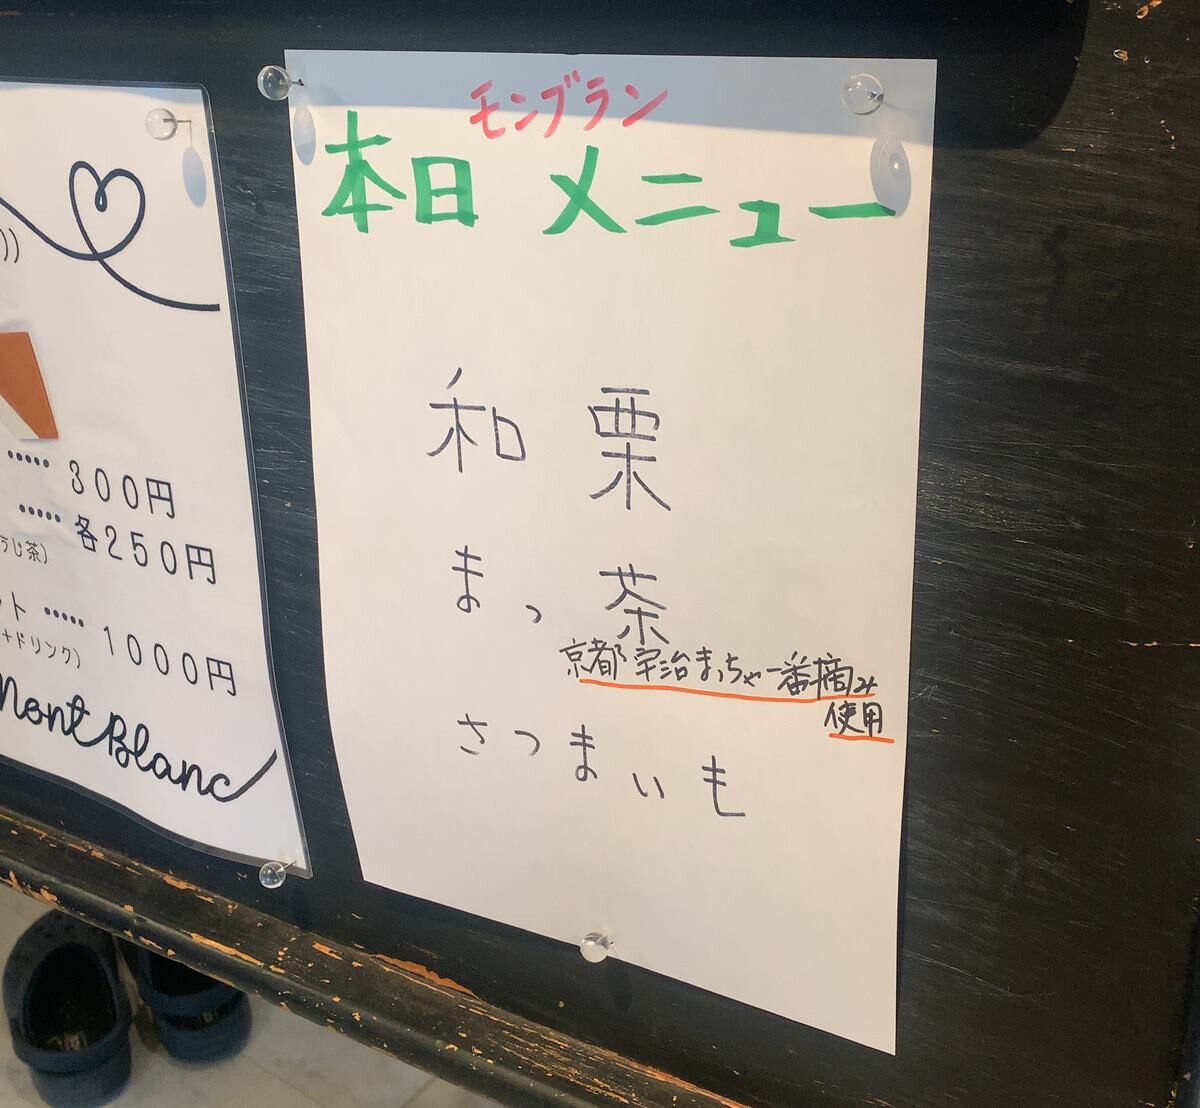 ))
..... 300円
..... 各250円
うじ茶)
ット ..... 1000円
+ドリンク)
Mont Blanc
モンブラン
本日 メニュー
和栗
まっ茶
京都 宇治まっちゃ一番摘み
使用
さつまいも